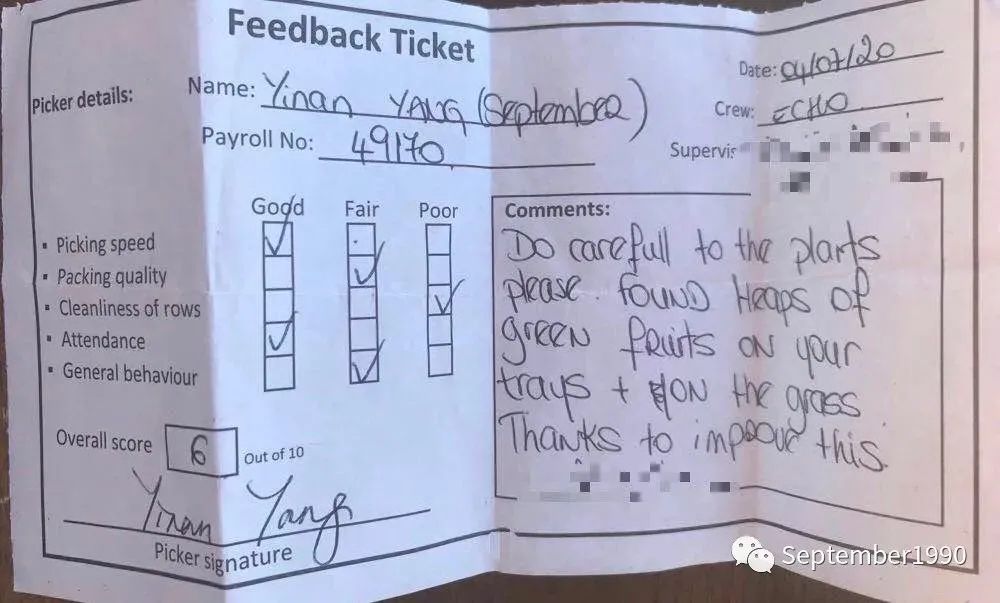 Feedback Ticket
Picker details:
Name: Yinan YANG (September)
Date: 04/07/20
Payroll No: 49170
Crew: ECHO
Supervis
Good Fair Poor
▪ Picking speed
▪ Packing quality
▪ Cleanliness of rows
▪ Attendance
▪ General behaviour
Comments:
Do carefull to the plants
please. FOUND Heaps OF
green fruits ON your
trays + ON the grass
Thanks to improve this.
Overall score 6 Out of 10
Yinan Yang
Picker signature
September1990